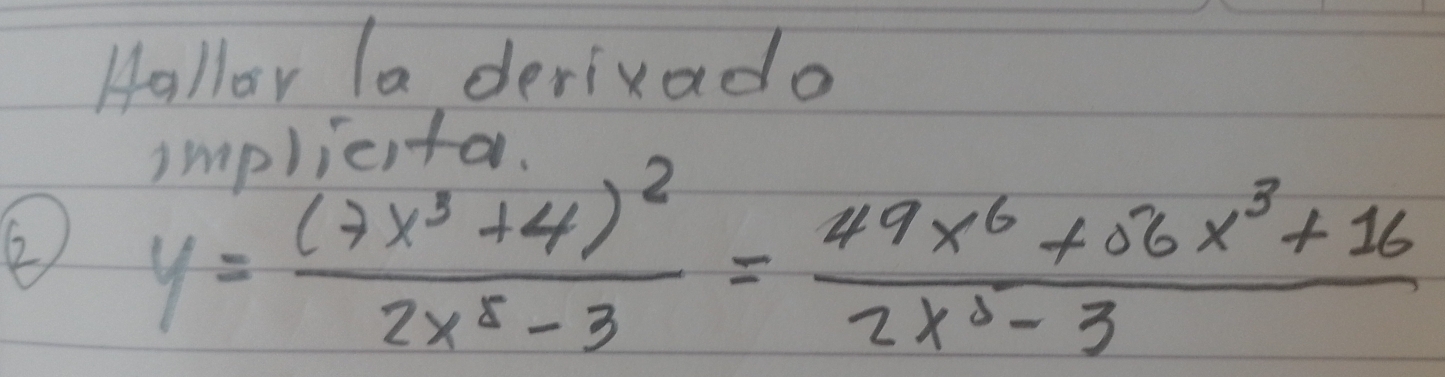 Hallar la derivado
implicita.
2 y = (7x³ + 4)² / 2x⁵ - 3 = 49x⁶ + 56x³ + 16 / 2x⁵ - 3